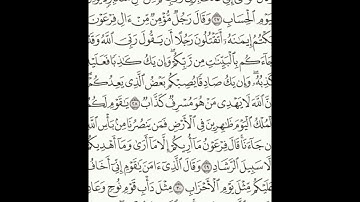 يَوْمِ ٱلْحِسَابِ ٢٧ وَقَالَ رَجُلٌ مُّؤْمِنٌ مِّنْ ءَالِ فِرْعَوْنَ
يَكْتُمُ إِيمَٰنَهُۥٓ أَتَقْتُلُونَ رَجُلًا أَن يَقُولَ رَبِّىَ ٱللَّهُ وَقَدْ
جَآءَكُم بِٱلْبَيِّنَٰتِ مِن رَّبِّكُمْ وَإِن يَكُ كَٰذِبًا فَعَلَيْهِ
كَذِبُهُۥ وَإِن يَكُ صَادِقًا يُصِبْكُم بَعْضُ ٱلَّذِى يَعِدُكُمْ
إِنَّ ٱللَّهَ لَا يَهْدِى مَنْ هُوَ مُسْرِفٌ كَذَّابٌ ٢٨ يَٰقَوْمِ لَكُمُ
ٱلْمُلْكُ ٱلْيَوْمَ ظَٰهِرِينَ فِى ٱلْأَرْضِ فَمَن يَنصُرُنَا مِنۢ بَأْسِ ٱللَّهِ
إِن جَآءَنَا قَالَ فِرْعَوْنُ مَآ أُرِيكُمْ إِلَّا مَآ أَرَىٰ وَمَآ أَهْدِيكُمْ
إِلَّا سَبِيلَ ٱلرَّشَادِ ٢٩ وَقَالَ ٱلَّذِىٓ ءَامَنَ يَٰقَوْمِ إِنِّىٓ أَخَافُ
عَلَيْكُم مِّثْلَ يَوْمِ ٱلْأَحْزَابِ ٣٠ مِثْلَ دَأْبِ قَوْمِ نُوحٍ وَعَادٍ